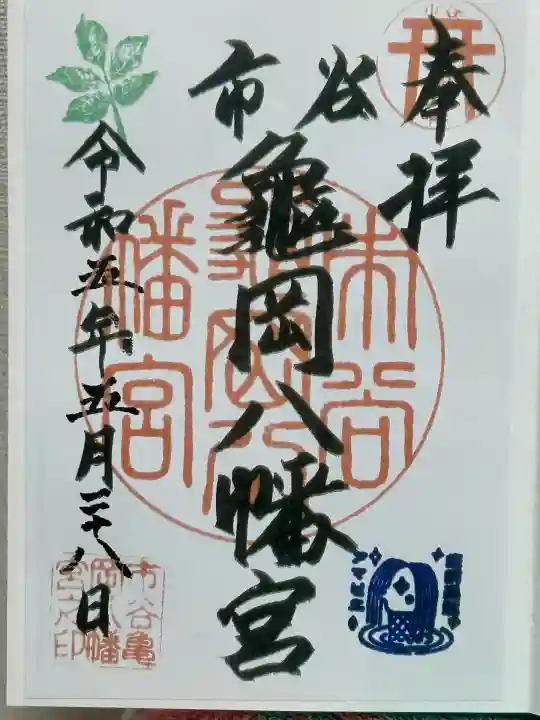 奉拝
市谷
亀岡八幡宮
令和五年五月二十八日
市谷
亀岡八
幡宮
市谷亀
岡八幡
宮之印